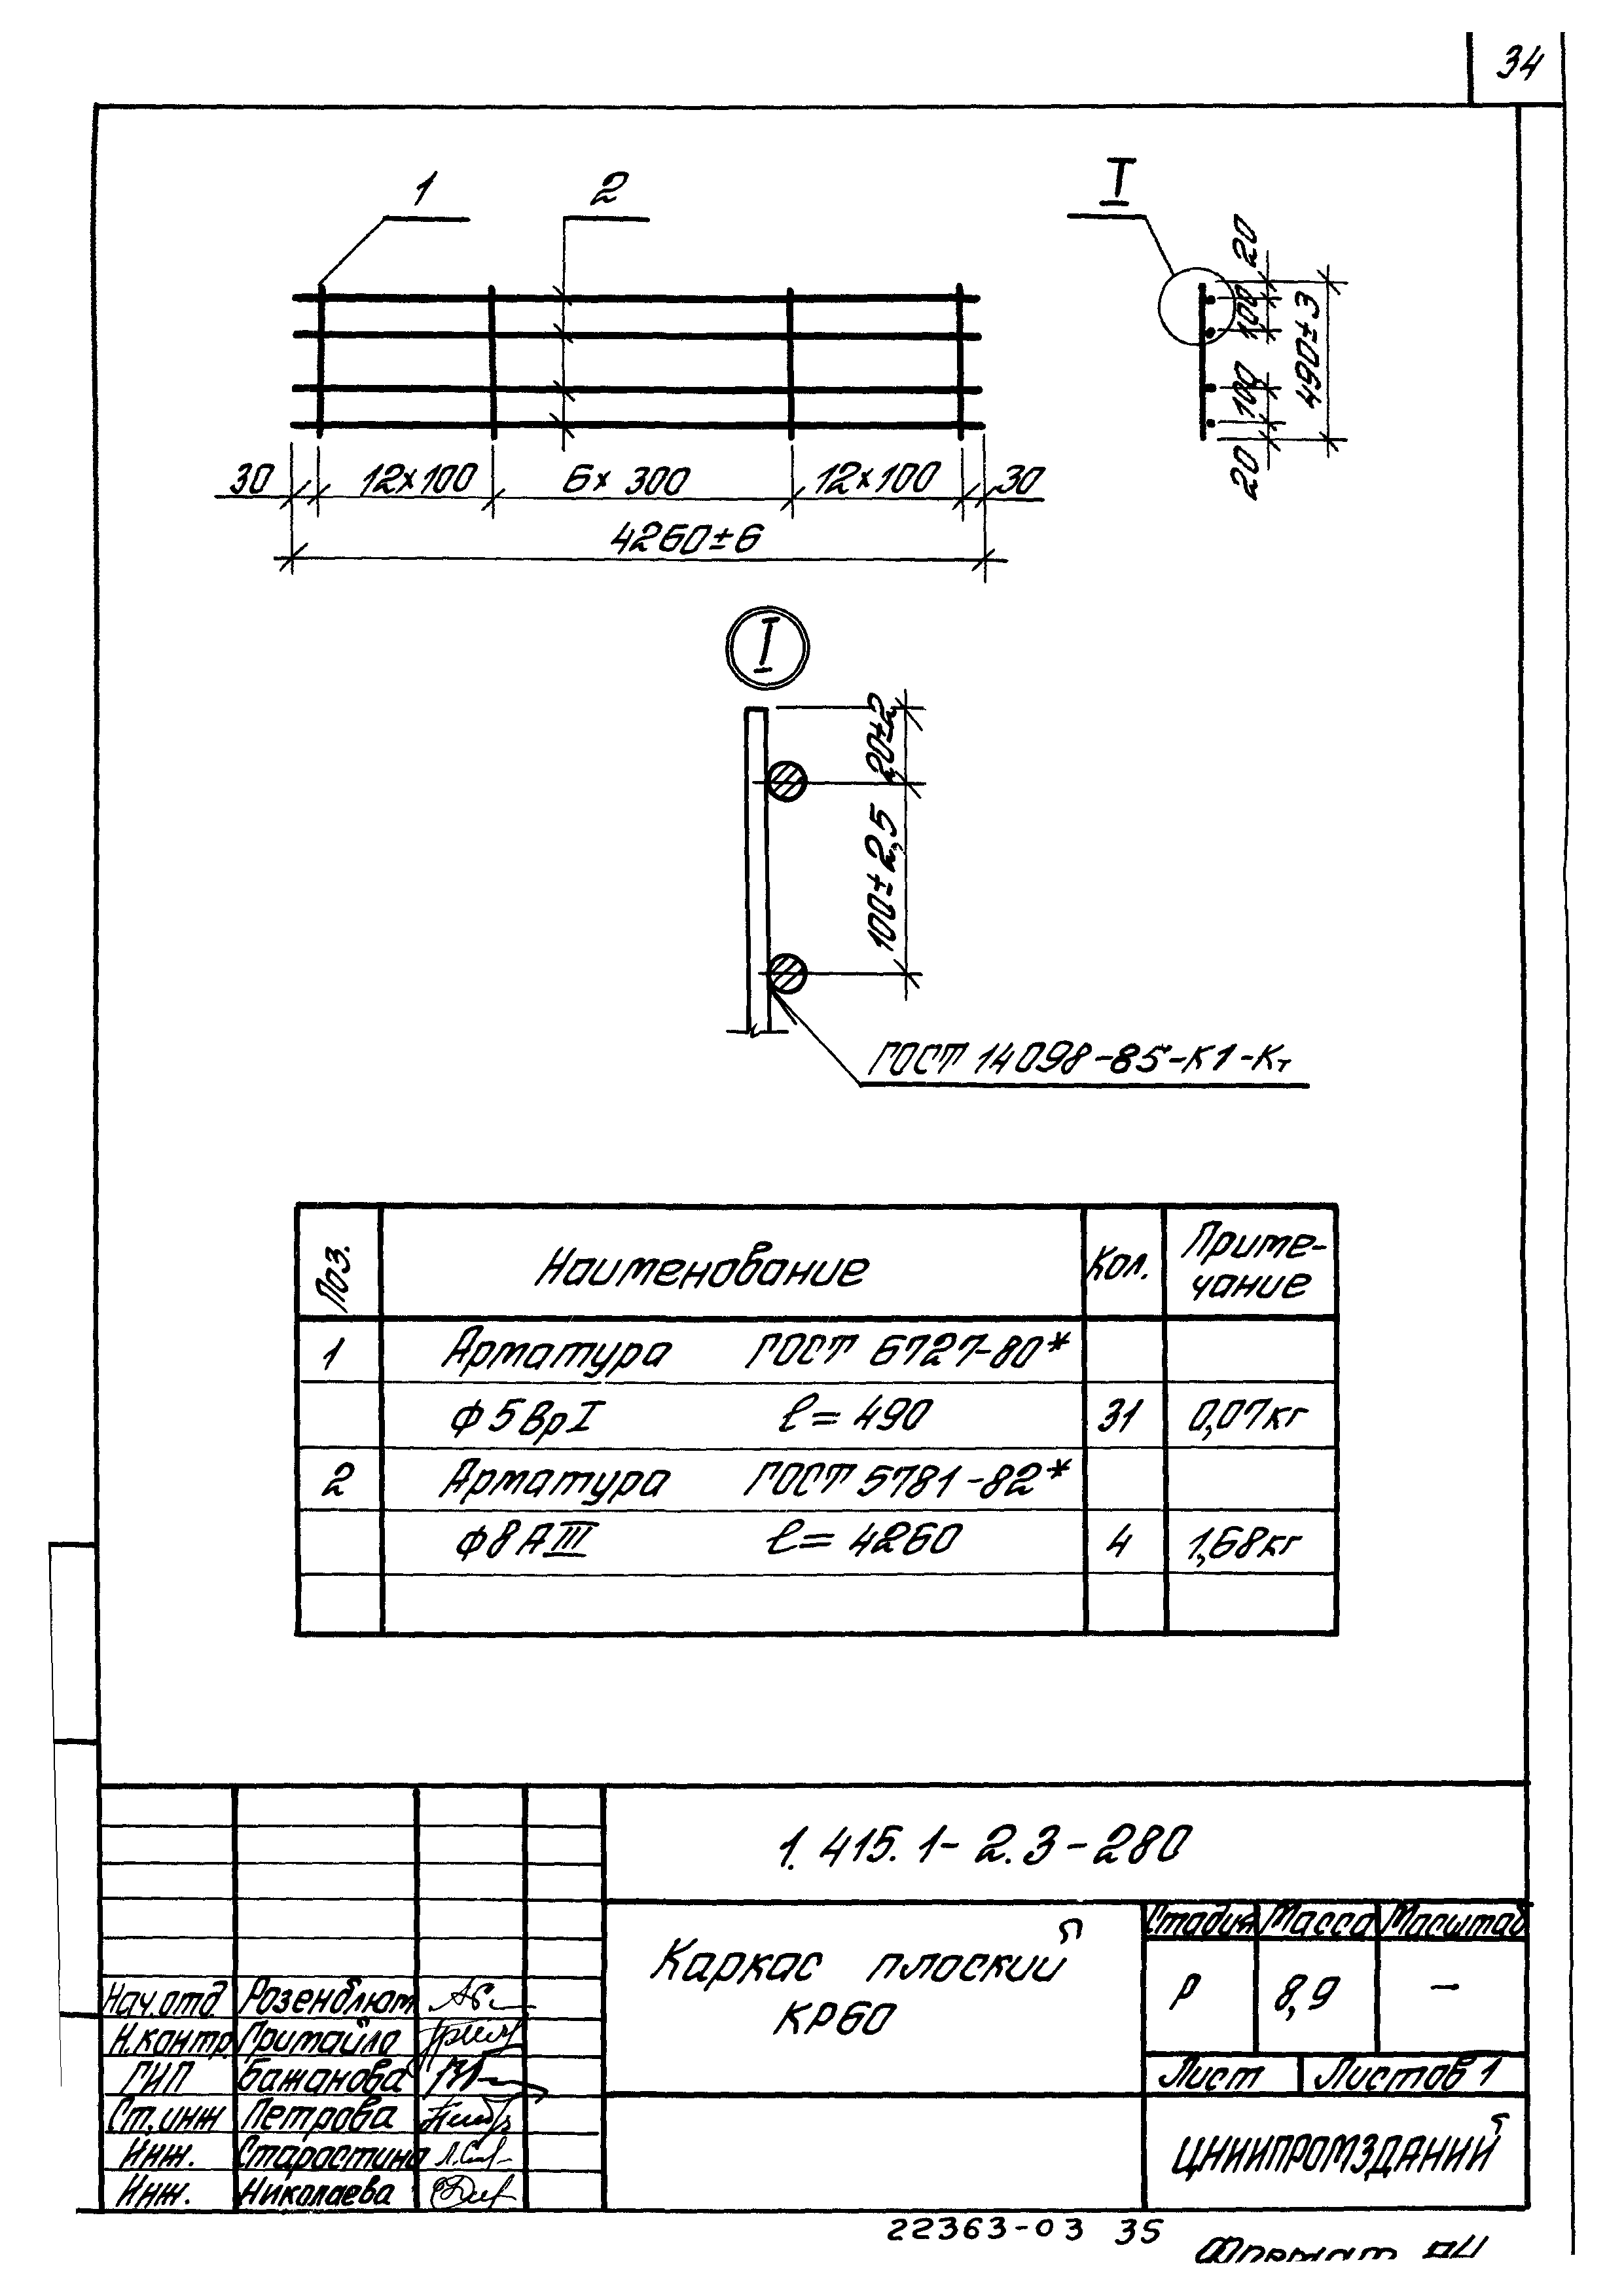 34
1
2
I
20
100
100
20
490±3
30
12×100
6×300
12×100
30
4260±6
I
20±2
100±2,5
ГОСТ 14098-85-К1-Кт
Поз.
Наименование
Кол.
Приме-
чание
1 Арматура ГОСТ 6727-80*
ф5ВрI ℓ=490 31 0,07кг
2 Арматура ГОСТ 5781-82*
ф8АIII ℓ=4260 4 1,68кг
1.415.1-2.3-280
Каркас плоский
КР60
Стадия Масса Масштаб
Р 8,9 –
Лист Листов 1
ЦНИИПРОМЗДАНИЙ
Нач.отд. Розенблюм
Н.контр. Гримайло
ГИП Бажанова
Ст.инж Петрова
Инж. Старостина
Инж. Николаева
22363-03 35
Формат А4